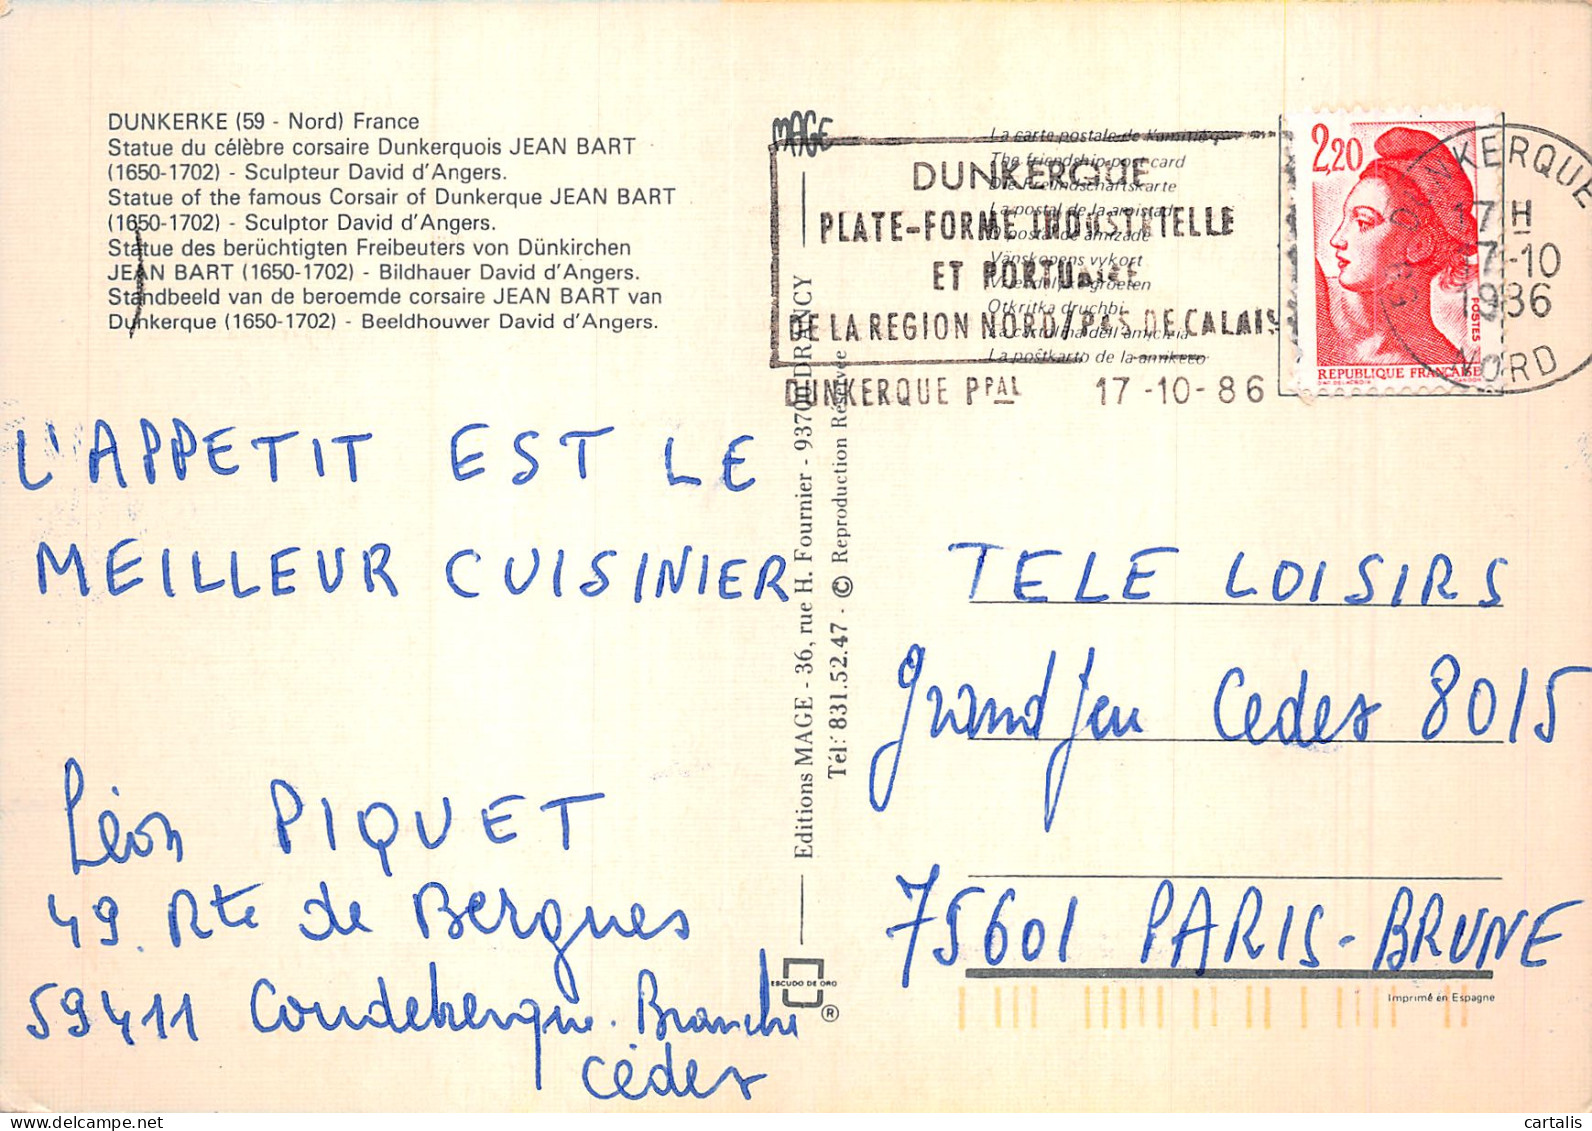 DUNKERKE (59 - Nord) France
Statue du célèbre corsaire Dunkerquois JEAN BART
(1650-1702) - Sculpteur David d'Angers.
Statue of the famous Corsair of Dunkerque JEAN BART
(1650-1702) - Sculptor David d'Angers.
Statue des berüchtigten Freibeuters von Dünkirchen
JEAN BART (1650-1702) - Bildhauer David d'Angers.
Standbeeld van de beroemde corsaire JEAN BART van
Dunkerque (1650-1702) - Beeldhouwer David d'Angers.
MAGE
La carte postale de l'amitié
The friendship post card
Die Freundschaftskarte
La postal de la amistad
postal de amizade
Vänskapens vykort
groeten
Otkritka druchbi
La cartolina dell'amicizia
La poŝtkarto de la amikeco
DUNKERQUE
PLATE-FORME INDUSTRIELLE
ET PORTUAIRE
DE LA REGION NORD / PAS DE CALAIS
DUNKERQUE PPAL 17-10-86
2,20
POSTES
REPUBLIQUE FRANÇAISE
DUNKERQUE
17 H
17-10
1986
NORD
L'APPETIT EST LE
MEILLEUR CUISINIER
Léon PIQUET
49. Rte de Bergues
59411 Coudekerque. Branche
Cédex
Editions MAGE - 36, rue H. Fournier - 93700 DRANCY
Tél: 831.52.47 - © Reproduction Réservée
ESCUDO DE ORO
®
TELE LOISIRS
Grand Jeu Cedex 8015
75601 PARIS-BRUNE
Imprimé en Espagne
cartalis